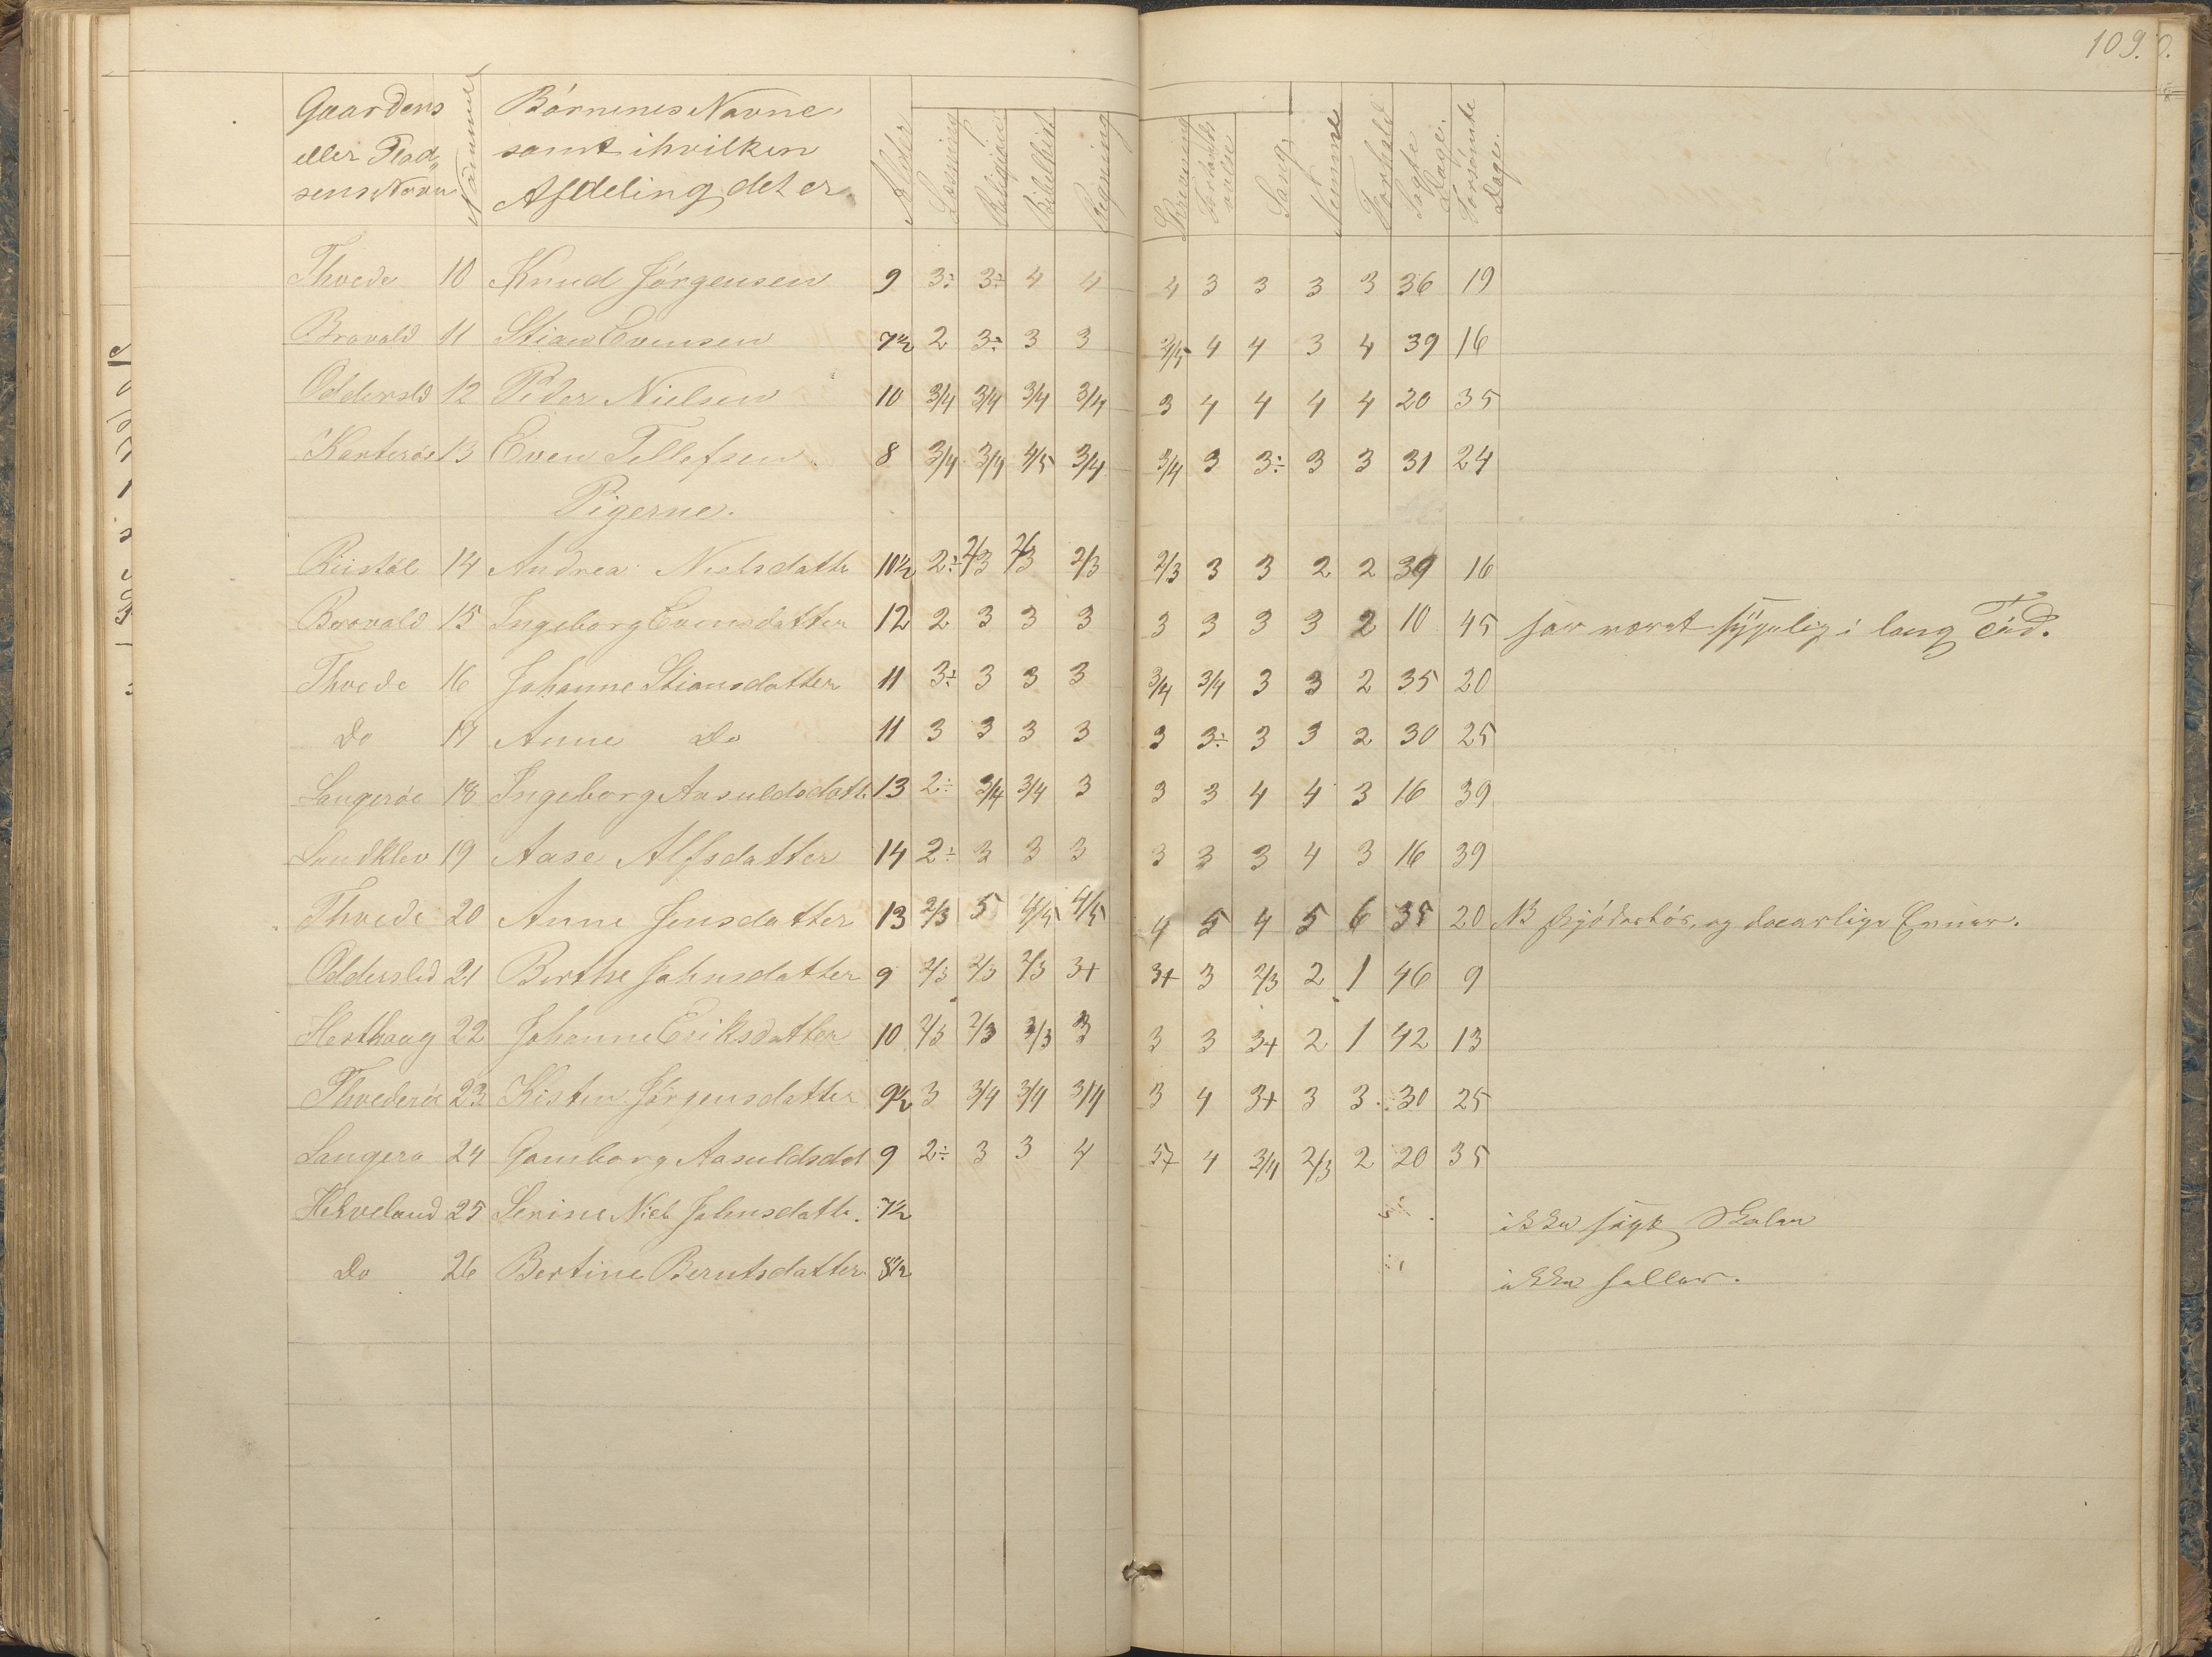 109.
Gaardens eller Plad„sens Navn | Nummer | Børnenes Navne samt i hvilken Afdeling det er. | Alder | Læsning | Religion | Bibelhist | Regning | Skrivning | Forstandsøvelse | Sang | Nemme | Forhold | Søgte Dage. | Forsømte Dage.
Thvede 10 Knud Jørgensen 9 3÷ 3÷ 4 4 4 3 3 3 3 36 19
Brovald 11 Stian Evensen 7½ 2 3÷ 3 3 3/4 4 4 3 4 39 16
Oddersld 12 Peder Nielsen 10 3/4 3/4 3/4 3/4 3 4 4 4 4 20 35
13 Even Tellefsen 8 3/4 3/4 4/5 3/4 3/4 3 3÷ 3 3 31 24
Pigerne.
14 Andrea Nielsdattr 10½ 2÷ 2/3 2/3 2/3 2/3 3 3 2 2 39 16
Brovald 15 Ingeborg Evensdatter 12 2 3 3 3 3 3 3 3 2 10 45 har været sygelig i lang Tid.
Thvede 16 Johanne Stiansdatter 11 3÷ 3 3 3 3/4 3/4 3 3 2 35 20
Do 17 Anne Do 11 3 3 3 3 3 3÷ 3 3 2 30 25
Langeröe 18 Ingeborg Aasuldsdatt. 13 2÷ 3/4 3/4 3 3 3 4 4 3 16 39
Sandklev 19 Aase Alfsdatter 14 2÷ 3 3 3 3 3 3 4 3 16 39
Thvede 20 Anne Jensdatter 13 2/3 5 4/5 4/5 4 5 4 5 6 35 20 NB skjödeslös, og daarlige Evner.
Oddersled 21 Berthe Johnsdatter 9 2/3 2/3 2/3 3+ 3+ 3 2/3 2 1 46 9
Hesthaag 22 Johanne Eriksdatter 10 2/3 2/3 2/3 3 3 3 3+ 2 1 42 13
Thvederöe 23 Kisten Jörgensdatter 9½ 3 3/4 3/4 3/4 3 4 3+ 3 3 30 25
Langerø 24 Gomborg Aasuldsdat 9 2÷ 3 3 4 5+ 4 3/4 2/3 2 20 35
Helveland 25 Serine Niel. Johnsdattr. 7½ ikke søgt Skolen
Do 26 Bertine Berntsdatter 8½ ikke heller.